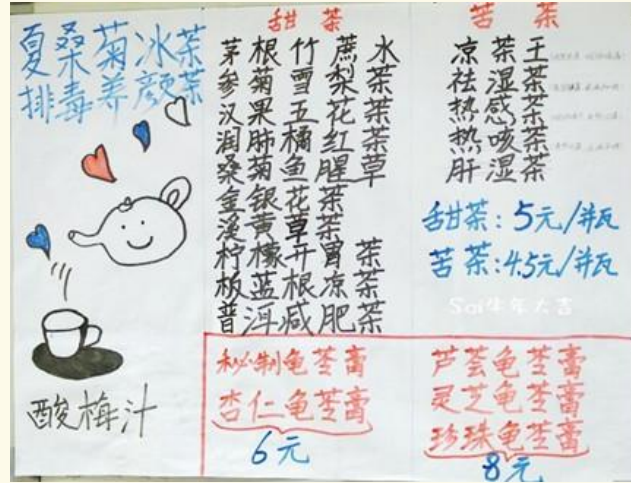 夏桑菊冰茶
排毒养颜茶
酸梅汁
甜茶
茅根竹蔗水
参菊雪梨茶
汉果五花茶
润肺橘红茶
桑菊鱼腥草
金银花茶
溪黄草茶
柠檬开胃茶
板蓝根凉茶
普洱减肥茶
苦茶
凉茶王
祛湿茶
热感茶
热咳茶
肝湿茶
甜茶:5元/瓶
苦茶:4.5元/瓶
Sai牛年大吉
秘制龟苓膏
杏仁龟苓膏
6元
芦荟龟苓膏
灵芝龟苓膏
珍珠龟苓膏
8元